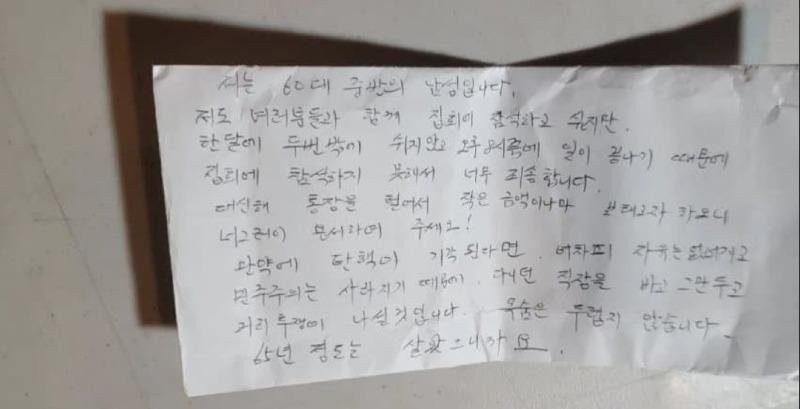 저는 60대 중반의 남성입니다.
저도 여러분들과 함께 집회에 참석하고 싶지만.
한달에 두번밖에 쉬지않고 오후 8시쯤에 일이 끝나기 때문에
집회에 참석하지 못해서 너무 죄송합니다.
대신해 통장을 털어서 작은 금액이나마 보태고자 하오니
너그러이 용서하여 주세요!
만약에 탄핵이 기각 된다면. 어차피 자유는 없어지고
민주주의는 사라지기 때문에. 다니던 직장을 바로 그만두고
거리투쟁에 나설것입니다. 목숨은 두렵지 않습니다
65년 정도는 살았으니까요.